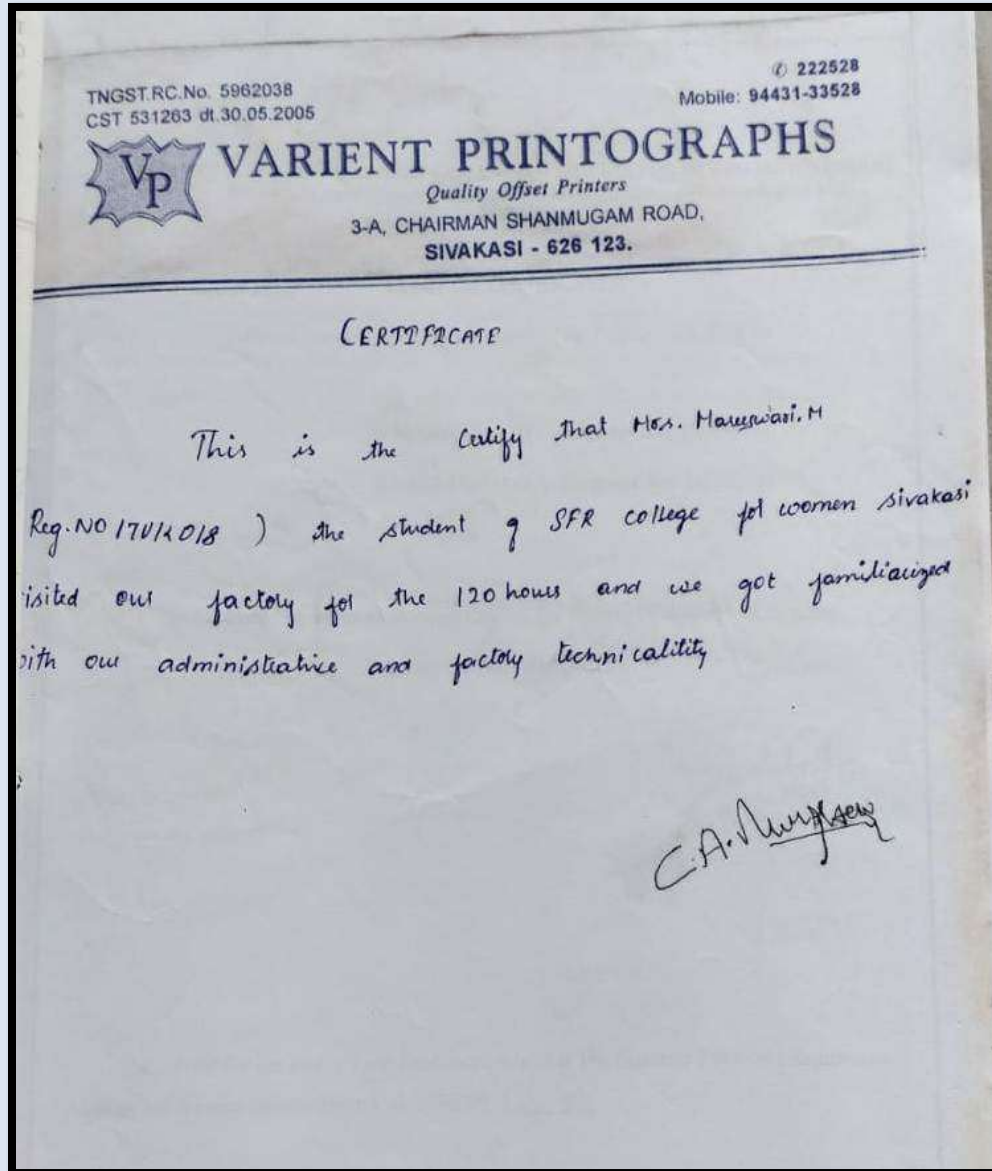 ✆ 222528
TNGST.RC.No. 5962038
Mobile: 94431-33528
CST 531263 dt.30.05.2005
VP VARIENT PRINTOGRAPHS
Quality Offset Printers
3-A, CHAIRMAN SHANMUGAM ROAD,
SIVAKASI - 626 123.
CERTIFICATE
This is the Certify that Mrs. Mareeswari. M
Reg. NO 17UK018 ) the student of SFR college for women sivakasi
isited our factory for the 120 hours and we got familiarized
with our administrative and factory technicalitity
C.A.